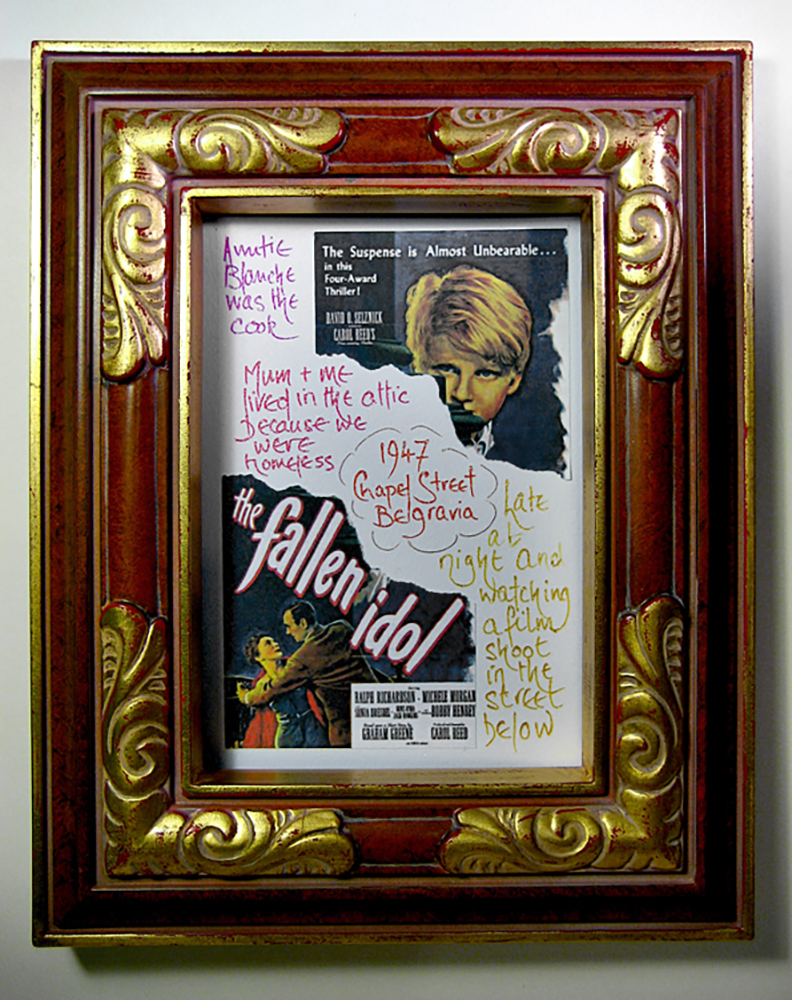 Auntie
Blanche
was the
cook
The Suspense is Almost Unbearable...
in this
Four-Award
Thriller!
DAVID O. SELZNICK
CAROL REED'S
Mum + me
lived in the attic
because we
were
homeless
1947
Chapel Street
Belgravia
the
fallen
idol
Late
at
night and
watching
a film
shoot
in the
street
below
RALPH RICHARDSON - MICHELE MORGAN
BOBBY HENREY
GRAHAM GREENE
CAROL REED